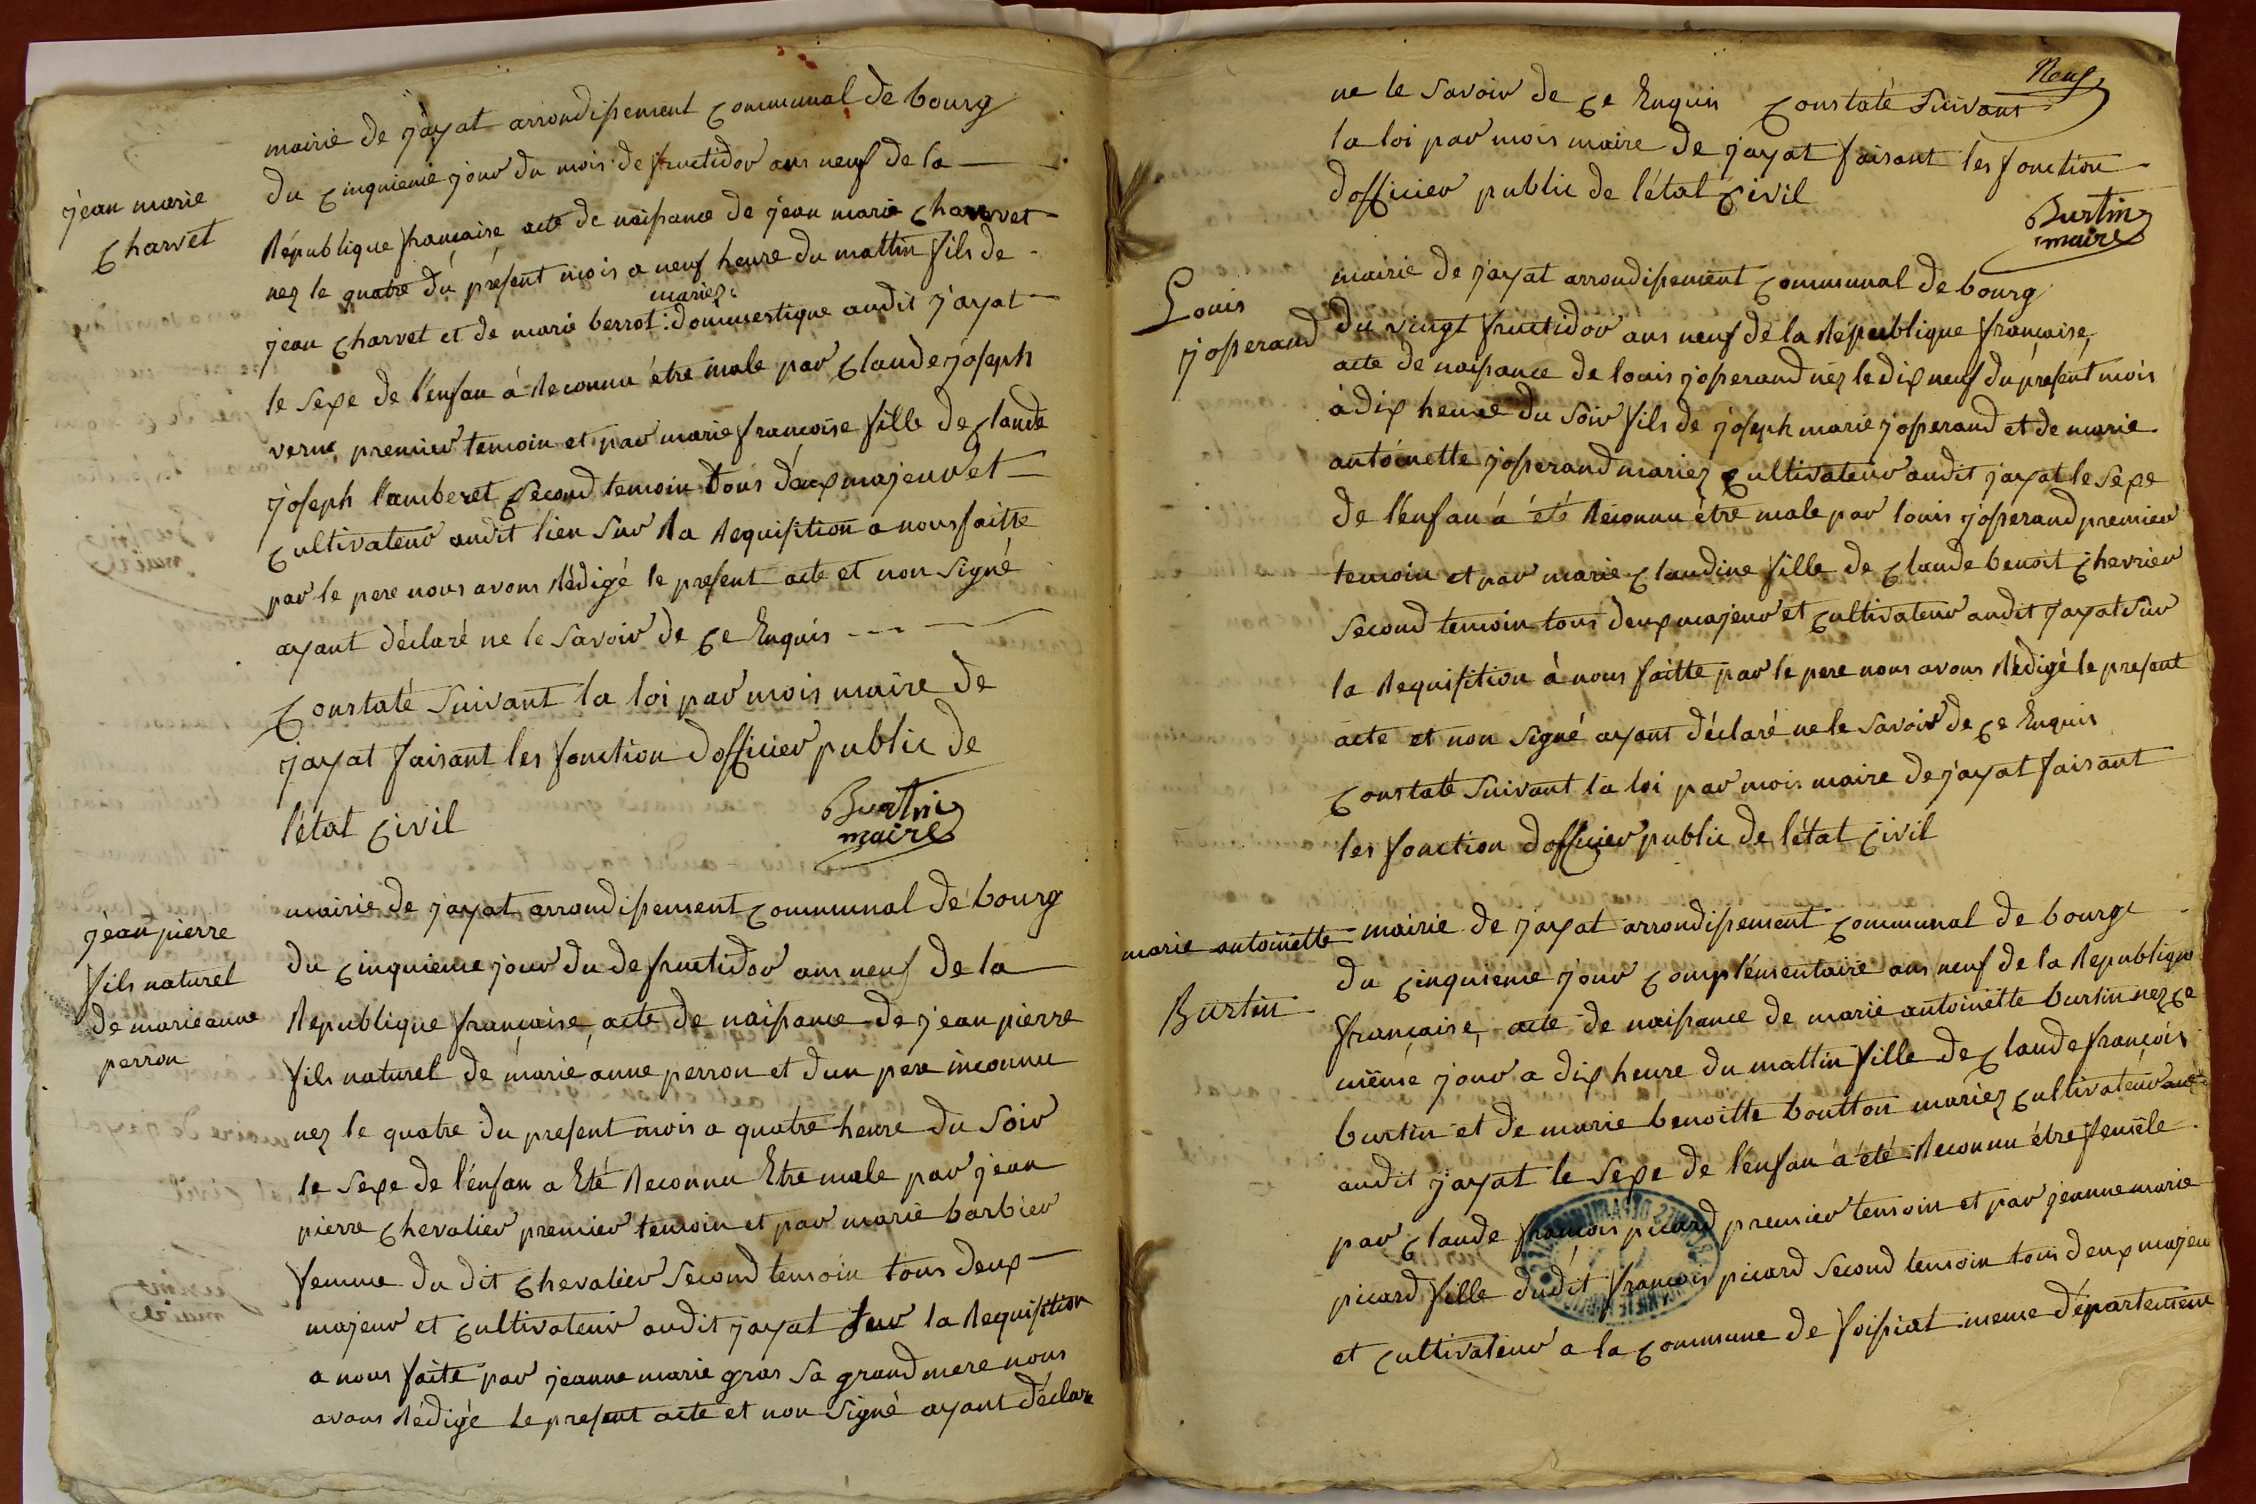 jean marie
charvet
mairie de jayat arrondissement communal de bourg
du cinquieme jour du mois de fructidor ans neuf de la
République francaise acte de naissance de jean marie charvet
nez le quatre du présent mois a neuf heure du mattin fils de
mariez
jean charvet et de marie berrot : dommestique audit jayat
le sexe de l'enfan á Reconnu étre male par claude joseph
verne premier temoin et par marie francoise fille de claude
joseph lamberet second temoin tous deux majeur et
cultivateur audit lieu sur la Requisition a nous faitte
par le pere nous avons Rédigé le present acte et non signé
ayant déclaré ne le savoir de ce Enquis
constaté suivant la loi par mois maire de
jayat faisant les fonction dofficier public de
létat civil
Burtin
maire
jean pierre
fils naturel
de marie anne
perron
mairie de jayat arrondissement communal de bourg
du cinquieme jour du de fructidor ans neuf de la
Republique francaise, acte de naissance de jean pierre
fils naturel de marie anne perron et dun pere inconnu
nez le quatre du present mois a quatre heure du soir
le sexe de l'énfan a Eté Reconnu Etre male par jean
pierre chevalier premier temoin et par marie barbier
femme du dit chevalier second temoin tous deux
majeur et cultivateur audit jayat sur la Requisition
a nous faite par jeanne marie gras sa grand mere nous
avons Rédigé le present acte et non signé ayant déclaré
Neuf
ne le savoir de ce Enquis constaté suivant
la loi par mois maire de jayat faisant les fonction
dofficier public de létat civil
Burtin
maire
Louis
josserand
mairie de jayat arrondissement communal de bourg
du vingt fructidor ans neuf de la République francaise,
acte de naissance de louis josserand nez le dix neuf du présent mois
à dix heure du soir fils de joseph marie josserand et de marie
antoinette josserand mariez cultivateur audit jayat le sexe
de l'énfan á été Reconnu étre male par louis josserand premier
temoin et par marie claudine fille de claude benoit chevrier
second temoin tous deux majeur et cultivateur audit jayat sur
la Requisition à nous faitte par le pere nous avons Rédigé le present
acte et non signé ayant déclaré ne le savoir de ce Enquis
constaté suivant la loi par mois maire de jayat faisant
les fonction dofficier public de létat civil
marie antoinette
Burtin
mairie de jayat arrondissement communal de bourg
du cinquieme jour complémentaire ans neuf de la Republique
francaise, acte de naissance de marie antoinette burtin nez ce
même jour a dix heure du mattin fille de claude françois
burtin et de marie benoitte boutton mariez cultivateur
audit jayat le sexe de l'enfan á été Reconnu étre femêle
par claude francois picard premier temoin et par jeanne marie
picard fille dudit francois picard second temoin tous deux majeur
et cultivateur a la commune de foissiat meme département